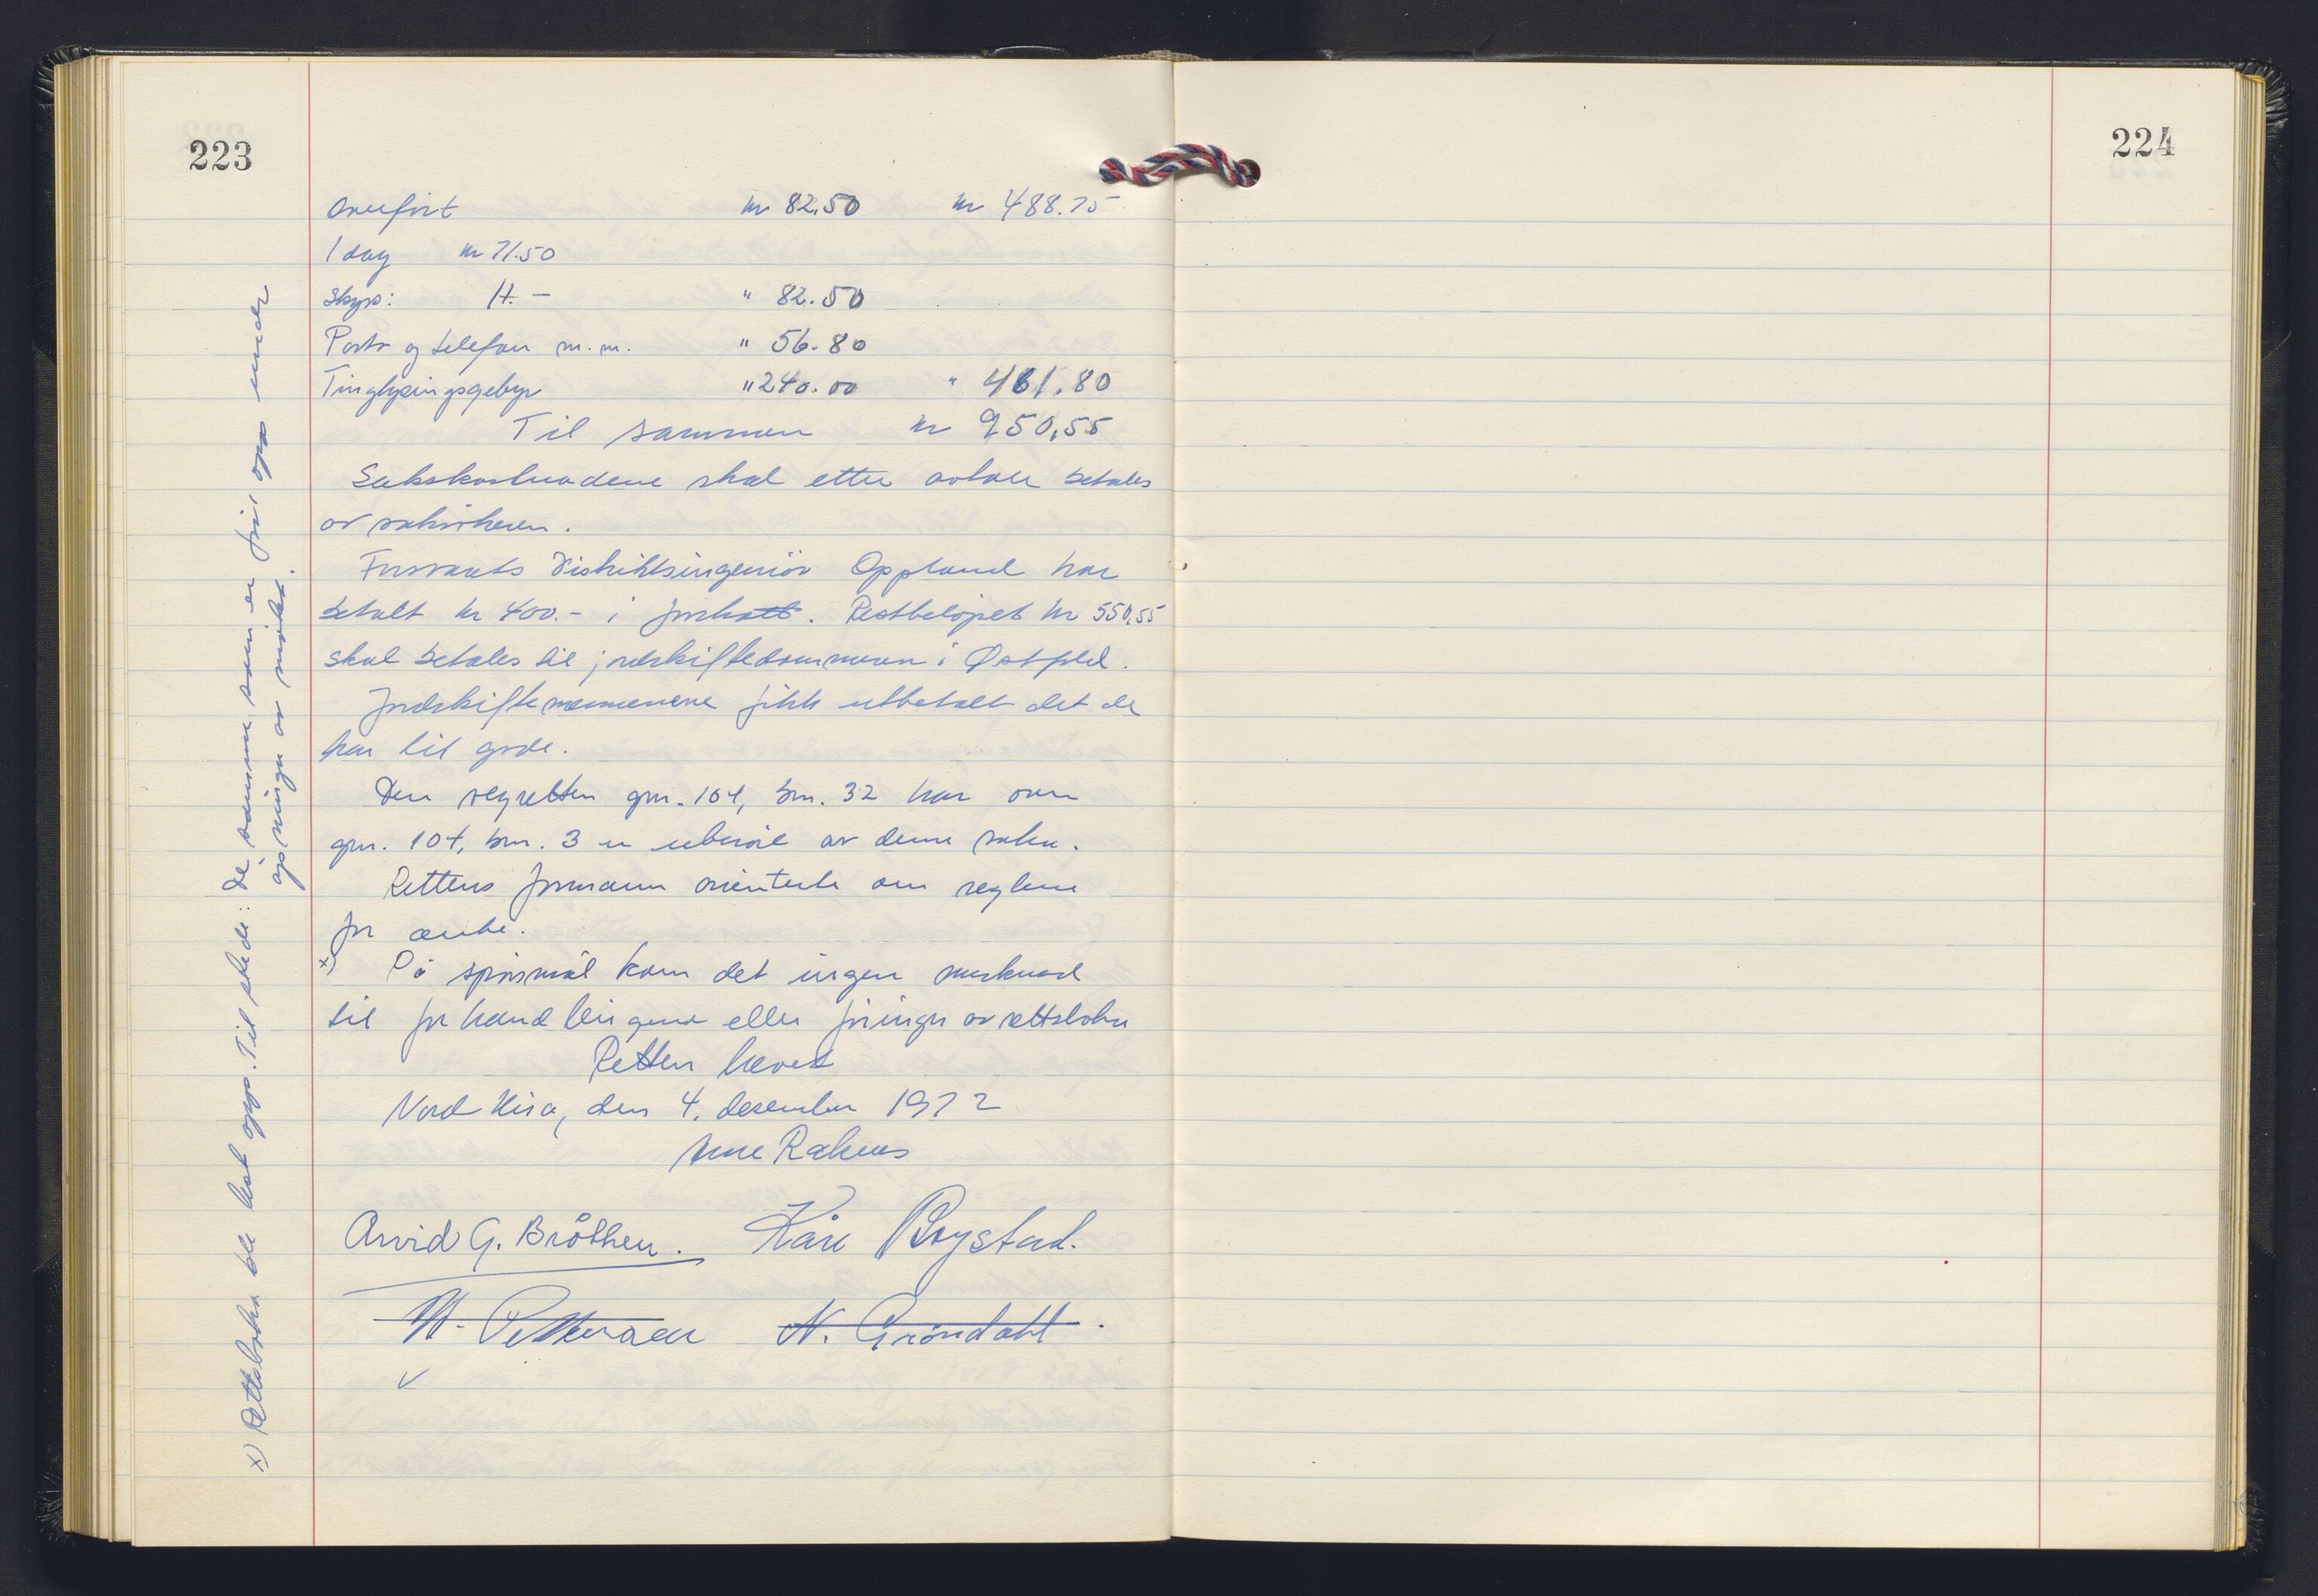 223
Overført kr 82.50 kr 488.75
1 dag kr 71.50
Skyss: 11.- " 82.50
Porto og telefon m.m. " 56.80
Tinglysingsgebyr " 240.00 " 461.80
Til sammen kr 950,55
Sakskostnadene skal etter avtale betales
av saksøkeren.
Forsvarets Distriktsingeniør Oppland har
betalt kr 400.- i forskott. Restbeløpet kr 550,55
skal betales til jordskiftedommeren i Østfold.
Jordskiftemennene fikk utbetalt det de
har til gode.
Den vegretten gnr. 104, bnr. 32 har over
gnr. 104, bnr. 3 er uberørt av denne saka.
Rettens formann orienterte om reglene
for anke.
x) På spørsmål kom det ingen merknad
til forhandlingene eller føringa av rettsboka
Retten hevet
den 4. desember 1972
Arvid G. Bråthen. Kåre Bøystad.
N. Pettersen N. Grøndahl.
x) Rettsboka ble lest opp. Til stede: de samme som er ført opp under
åpninga av møtet.
224